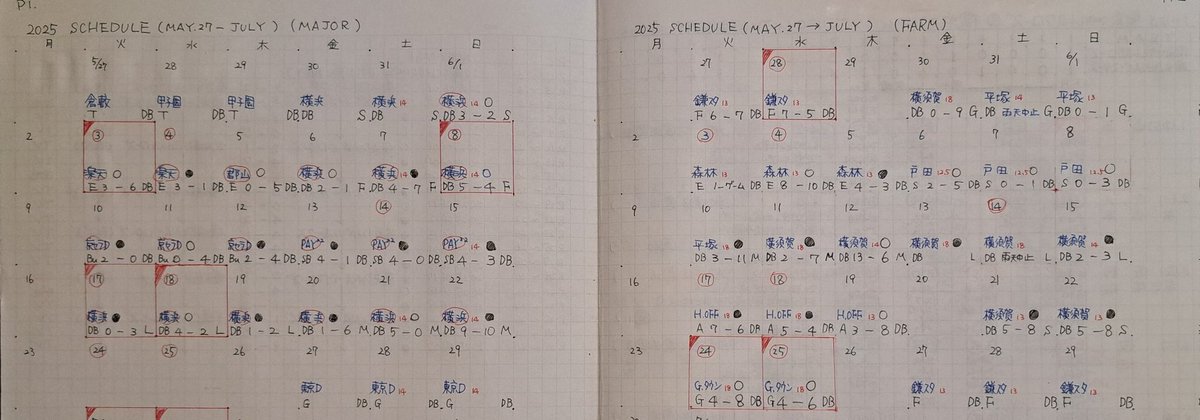 P1.
2025 SCHEDULE (MAY.27-JULY) (MAJOR)
月 火 水 木 金 土 日
5/27 28 29 30 31 6/1
倉敷 甲子園 甲子園 横浜 横浜 14 横浜 14 ○
T DB. T DB. T DB. DB S. DB S. DB 3-2 S
2 ③ ④ 5 6 7 ⑧
楽天 ○ 楽天 ● 郡山 ○ 横浜 ○ 横浜 14 ● 横浜 ○
E 3-6 DB E 3-1 DB. E 0-5 DB. DB 2-1 F. DB 4-7 F DB 5-4 F
9 10 11 12 13 ⑭ 15
京セラD ● 京セラD ○ 京セラD ● PAYペ ● PAYペ 14 ● PAYペ 14 ●
Bu 2-0 DB Bu 0-4 DB Bu 2-4 DB. SB 4-1 DB. SB 4-0 DB. SB 4-3 DB.
16 ⑰ ⑱ 19 20 21 22
横浜 ● 横浜 ○ 横浜 ● 横浜 ● 横浜 14 ○ 横浜 14 ●
DB 0-3 L DB 4-2 L DB 1-2 L. DB 1-6 M. DB 5-0 M. DB 9-10 M.
23 ㉔ ㉕ 26 27 28 29
東京D 東京D 14 東京D 14
G DB. G DB. G DB.
2025 SCHEDULE (MAY.27→JULY) (FARM)
月 火 水 木 金 土 日
27 ㉘ 29 30 31 6/1
鎌スタ 13 鎌スタ 13 横須賀 18 平塚 14 平塚 13
F 6-7 DB F 7-5 DB DB 0-9 G. DB 雨天中止 G. DB 0-1 G.
2 ③ ④ 5 6 7 8
森林 13 森林 13 ○ 森林 13 ● 戸田 12.5 ○ 戸田 12.5 戸田 12.5 ○
E ノーゲーム DB E 8-10 DB. E 4-3 DB. S 2-5 DB. S 0-1 DB. S 0-3 DB
9 10 11 12 13 ⑭ 15
平塚 18 ● 横須賀 18 ● 横須賀 14 ○ 横須賀 18 ● 横須賀 18 横須賀 14 ●
DB 3-11 M DB 2-7 M. DB 13-6 M. DB L. DB 雨天中止 L. DB 2-3 L.
16 ⑰ ⑱ 19 20 21 22
H.OFF 18 ● H.OFF 18 ● H.OFF 13 ○ 横須賀 13 ● 横須賀 13 ●
A 7-6 DB A 5-4 DB A 3-8 DB. DB 5-8 S. DB 5-8 S.
23 ㉔ ㉕ 26 27 28 29
G.タウン 18 ○ G.タウン 18 ○ 鎌スタ 13 鎌スタ 13 鎌スタ 13
G 4-8 DB G 4-6 DB. F DB. F DB. F DB.